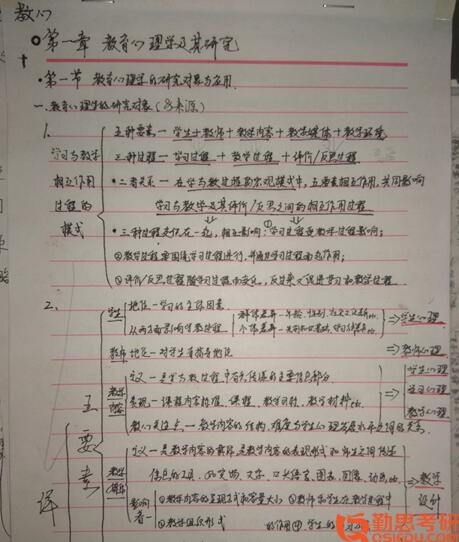 教心
第一章 教育心理学及其研究
·第一节 教育心理学的研究对象与应用
一.教育心理学的研究对象(含来源)
1.
学习与教学相互作用过程的模式
五种要素—学生+教师+教学内容+教学媒体+教学环境
三种过程—学习过程+教学过程+评价/反思过程
·二者关系—在学与教过程的宏观模式中,五要素相互作用,共同影响
学习与教学及其评价/反思之间的相互作用过程
·三种过程交织在一起,相互影响:①学习过程受教学过程影响;
②教学过程要围绕学习过程进行,并通过学习过程而起作用;
③评价/反思过程随学习过程而变化,反过来又促进学习和教学过程.
2.
学生
地位—学习的主体因素
从两方面影响学教过程
群体差异—年龄、性别、
个体差异—
⇒学生心理
教师 地位—对学生
⇒教师心理
教学内容
定义—是学与教过程中有意传递的主要信息部分
表现—课程内容标准、课程、教学目标、教学材料etc.
教师关注点—教学内容的结构、难度与学生心理发展水平之间的关系.
⇒
学生心理
学习心理
教学心理
教学媒体
定义—是教学内容的载体,是教学内容的表现形式,师生之间传递
信息的工具,如实物、文字、口头语言、图表、图像、动画etc.
影响着—
①教学内容的呈现方式和容量大小 ②教师和学生在教学过程中
③教学组织形式
的作用 ④学生的
⇒教学设计
五要素
详
勤思考研
QSIEDU.COM